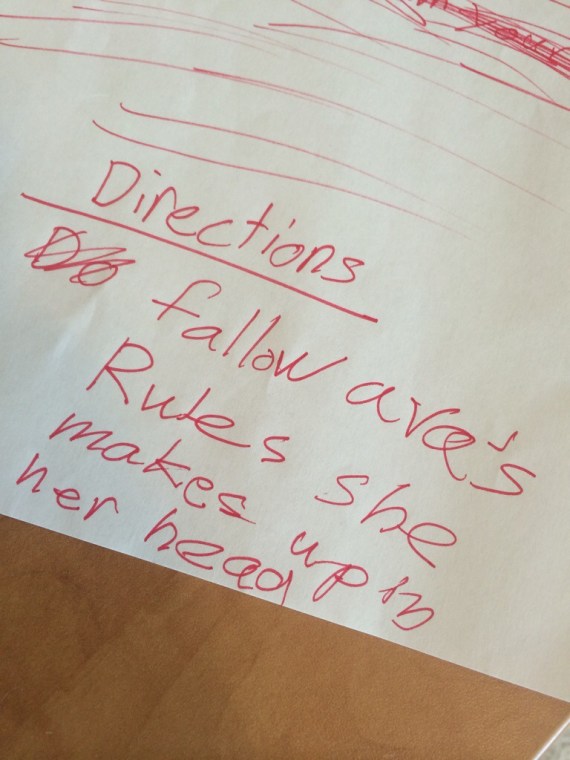 your
Directions
fallow ava's
Rules she
makes up in
her head